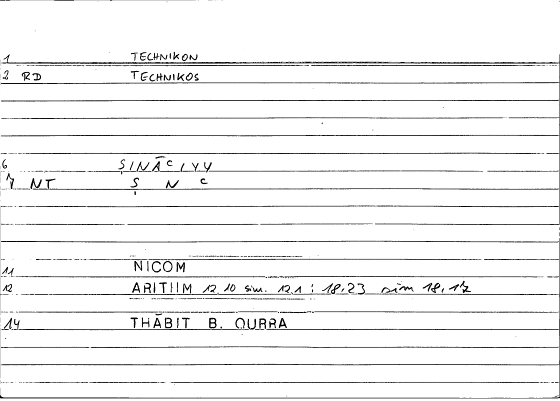 1 TECHNIKON
2 RD TECHNIKOS
6 ṢINĀCIYY
7 NT Ṣ N C
11 NICOM
12 ARITHM 12.10 sim. 12.1 ; 18.23 sim 18.17
14 THĀBIT B. QURRA